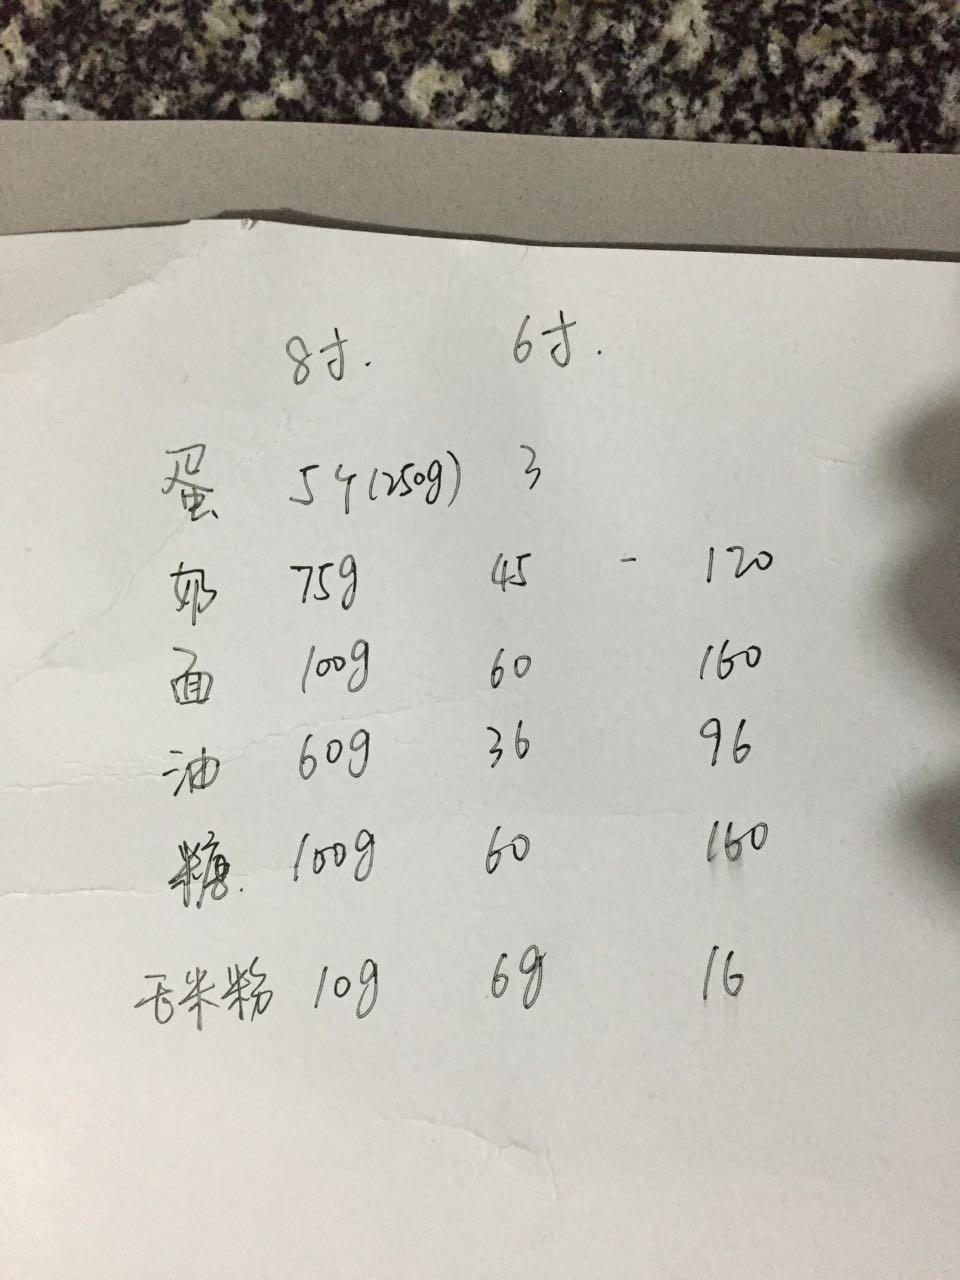 8寸. 6寸.
蛋 5个(250g) 3
奶 75g 45 - 120
面 100g 60 160
油 60g 36 96
糖. 100g 60 160
玉米粉 10g 6g 16